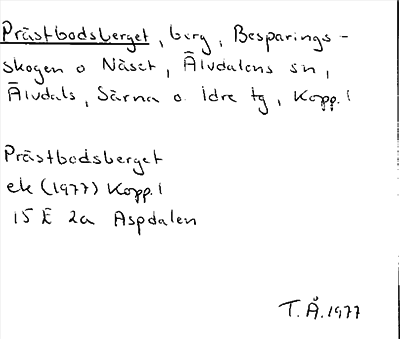 Prästbodsberget, berg, Besparings-
skogen o Näset, Älvdalens sn,
Älvdals, Särna o. Idre tg, Kopp. l
Prästbodsberget
ek (1977) Kopp. l
15 E 2a Aspdalen
T.Å. 1977